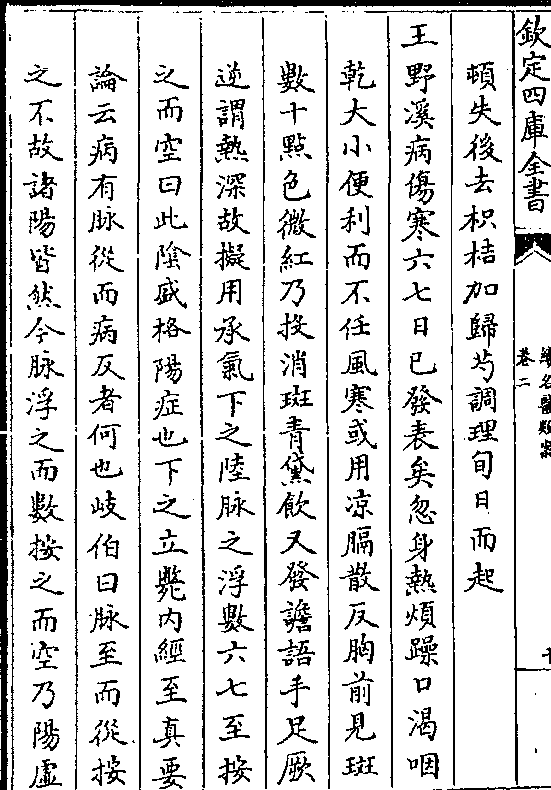 欽定四庫全書
續名醫類案
卷二
頓失後去枳桔加歸芍調理旬日而起
王野溪病傷寒六七日已發表矣忽身熱煩躁口渴咽
乾大小便利而不任風寒或用凉膈散反胸前見斑
數十點色微紅乃投消斑青黛飲又發譫語手足厥
逆謂熱深故擬用承氣下之陸脉之浮數六七至按
之而空曰此陰盛格陽症也下之立斃内經至真要
論云病有脉從而病反者何也岐伯曰脉至而從按
之不故諸陽皆然今脉浮之而數按之而空乃陽虛